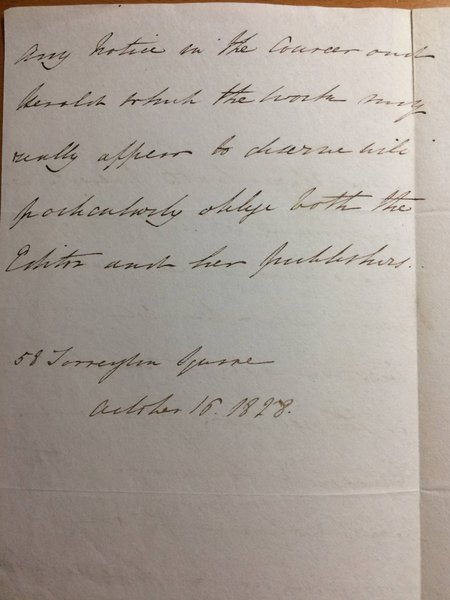 any notice in the Courier and
Herald which the work may
really appear to deserve will
particularly oblige both the
Editor and her publishers.
58 Torrington Square
October 16. 1828.